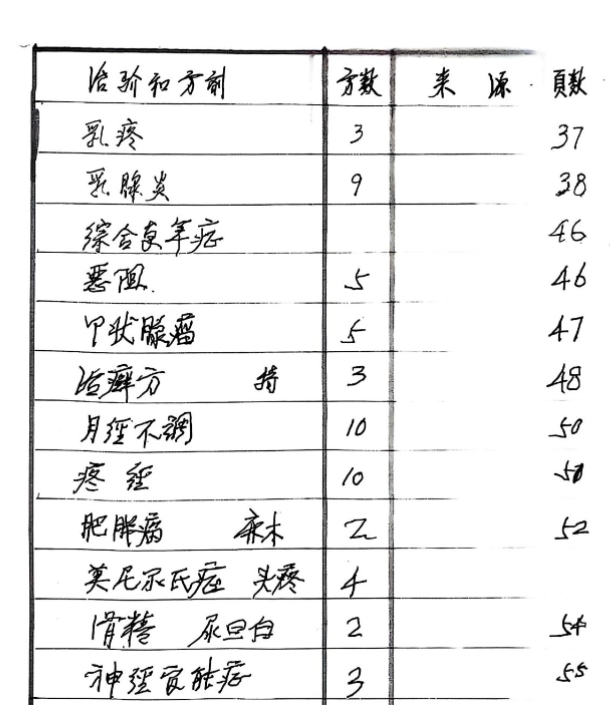 治验和方剂 方数 来源 頁数
乳疼 3 37
乳腺炎 9 38
综合更年症 46
恶阻. 5 46
甲状腺瘤 5 47
治癣方 3 48
月経不調 10 50
疼経 10 50
肥胖病 2 52
美尼尔氏症 头疼 4
滑精 尿旦白 2 54
神经官能症 3 55